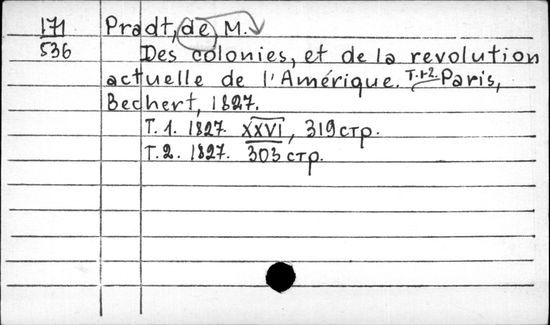 171 Pradt, de, M.
536 Des colonies, et de la revolution
actuelle de l'Amérique. T.1-2. Paris,
Bechert, 1827.
T. 1. 1827. XXVI, 319 стр.
T. 2. 1827. 303 стр.